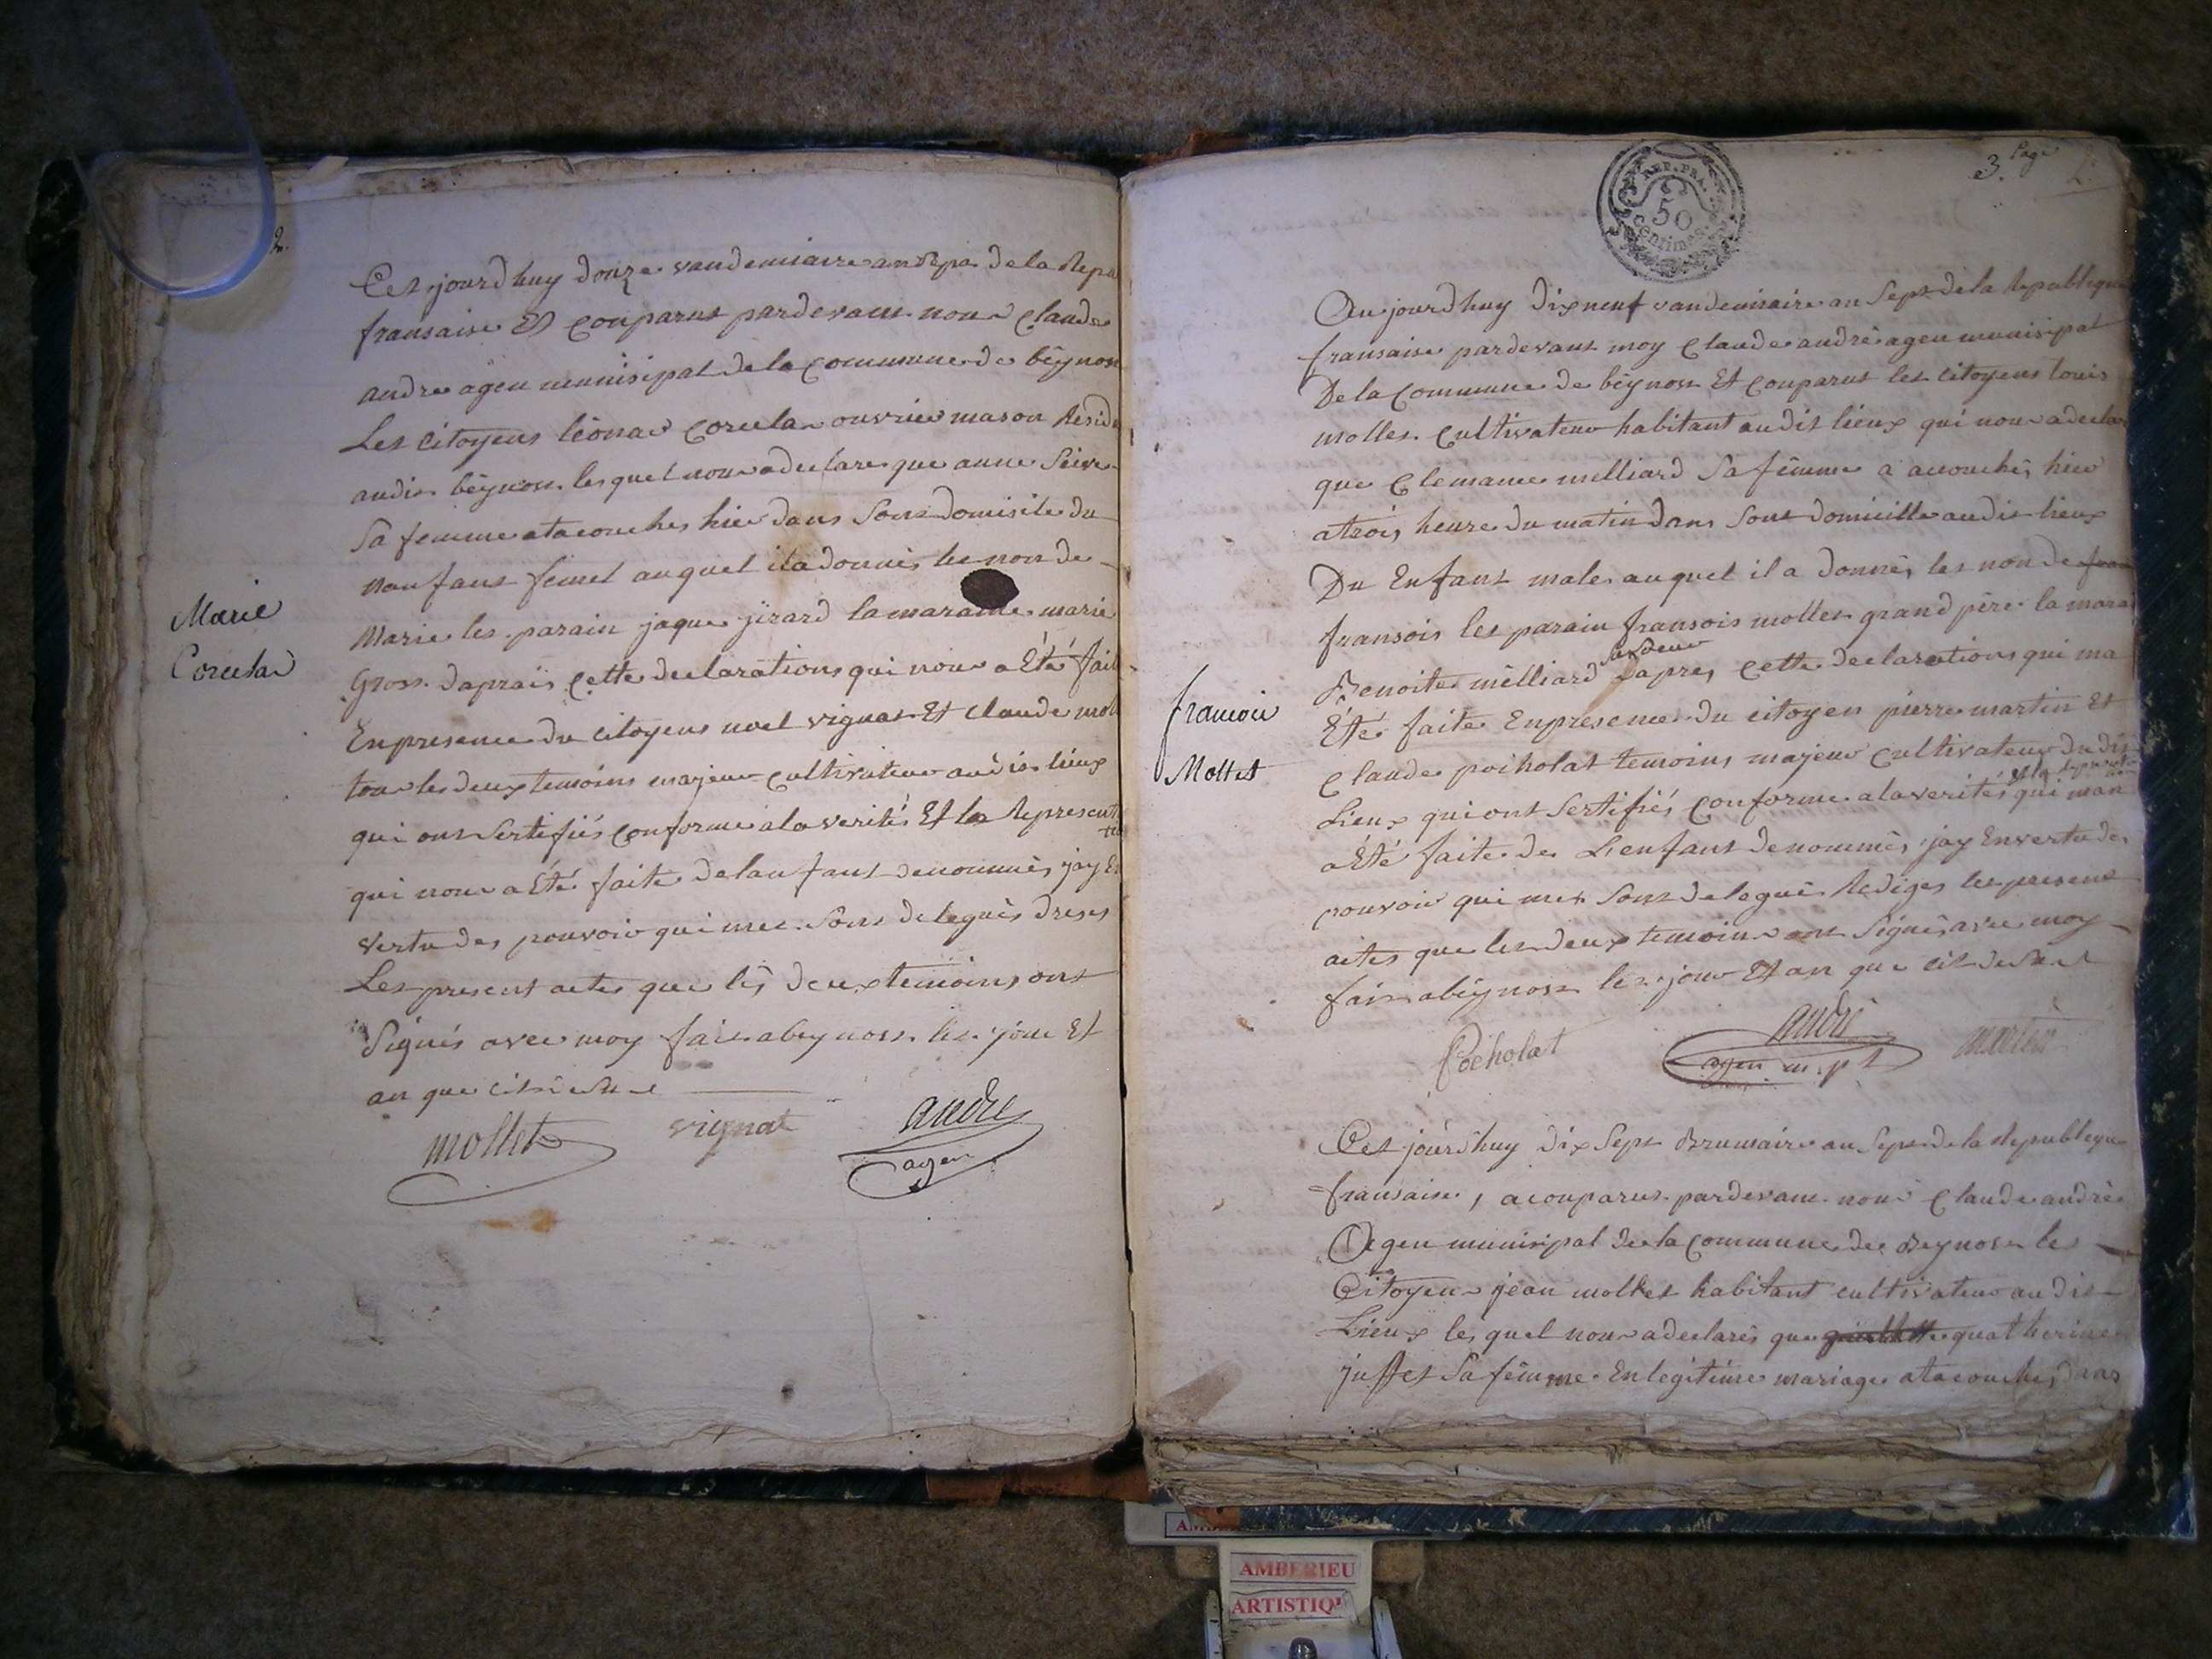 2.
Cet jourd huy douze vandemiaire an Sept de la Repu
fransaise Et conparut pardevant nous Claude
andre agen munisipal de la commune de bêynost
Les Citoyens léonar Corcelar ouvrier mason Resid
audit bêynost lesquel nous a declare que anne
Sa femme atacouches hier dans Sont domisile du
nanfant femel auquel il a donnés les non de
Marie les parain jaque jirard la maraine marie
Gross d'aprais cette declarations qui nous a Eté fait
En presence du Citoyens noel vignat Et Claude mol
tous les deux temoins majeur cultivateur audit lieux
qui ont Sertifiés conforme a la verités Et la Represent
qui nous a Eté faite de lanfant denommés jay En
vertu des pouvoir qui met Sont delegués dreses
Les present actes que lês deux temoins ont
Signés avec moy fait a beynost les jour Et
an que cit desus
mollet vignat andré
agen
Marie
Corcelar
3. Page
REP. FRA.
50
Centimes
Aujourdhuy dix neuf vandemiaire an Sept de la Republique
fransaise pardevant moy Claude andrè agen munisipal
De la Commune de bêynost Et conparut les citoyens louis
mollet Cultivateur habitant audit lieux qui nous a declar
que Clemance milliard Sa fêmme a acouchés hier
atrois heure du matin dans Sont domicille audit lieux
Du Enfant male auquel il a donnés les non de
fransois les parain fransois mollet grand père la mara
Benoite milliard Dapres cette declarations qui ma
Eté faite En presence du citoyen pierre martin Et
Claude poiholat temoins majeur Cultivateur du dit
Lieux qui ont Sertifiés conforme a la verités qui man
a Eté faite de Lenfant denommés jay En vertu des
pouvoir qui met Sont delegués Rediges les present
actes que les deux temoins ont Signés avec moy
fait a bêynost les jour Et an que cit desus
Poèholat andrè martin
agen m.pl
francois
Mollet
Cet jourdhuy dix Sept Brumaire an Sept de la Republeque
fransaise, a conparut pardevant nous Claude andrè
Agen munisipal de la commune de Beynost les
Citoyen jean mollet habitant cultivateur audit
Lieux les quel nous a declarés que quatherine
juffet Sa fêmme En legitime mariage atacouches dans
AMBERIEU
ARTISTIQ